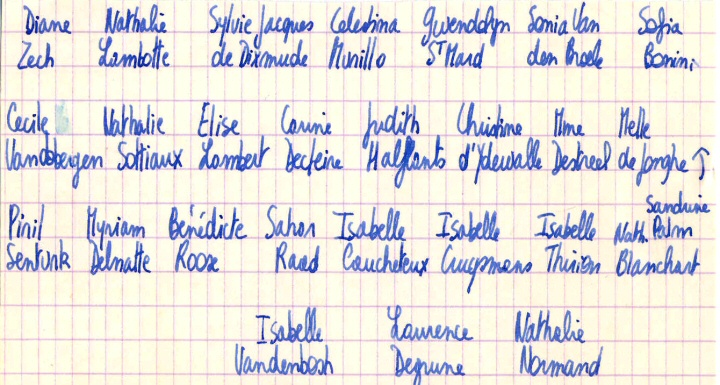 Diane Nathalie Sylvie Jacques Celestina Gwendolyn Sonia Van Sofia
Zech Lambotte de Dixmude Murillo St Mard den Broele Bonini
Cecile Nathalie Elise Carine Judith Christine Mme Melle
Vandebergen Sottiaux Lambert Halflants d'Ydewalle Destreel de Jonghe ↑
Sandrine
Pinil Myriam Bénédicte Sahar Isabelle Isabelle Isabelle Nath. Palm
Senturk Delmatte Rooze Raad Caucheteux Cruypmans Thirion Blanchart
Isabelle Laurence Nathalie
Vandenbosh Degrune Normand